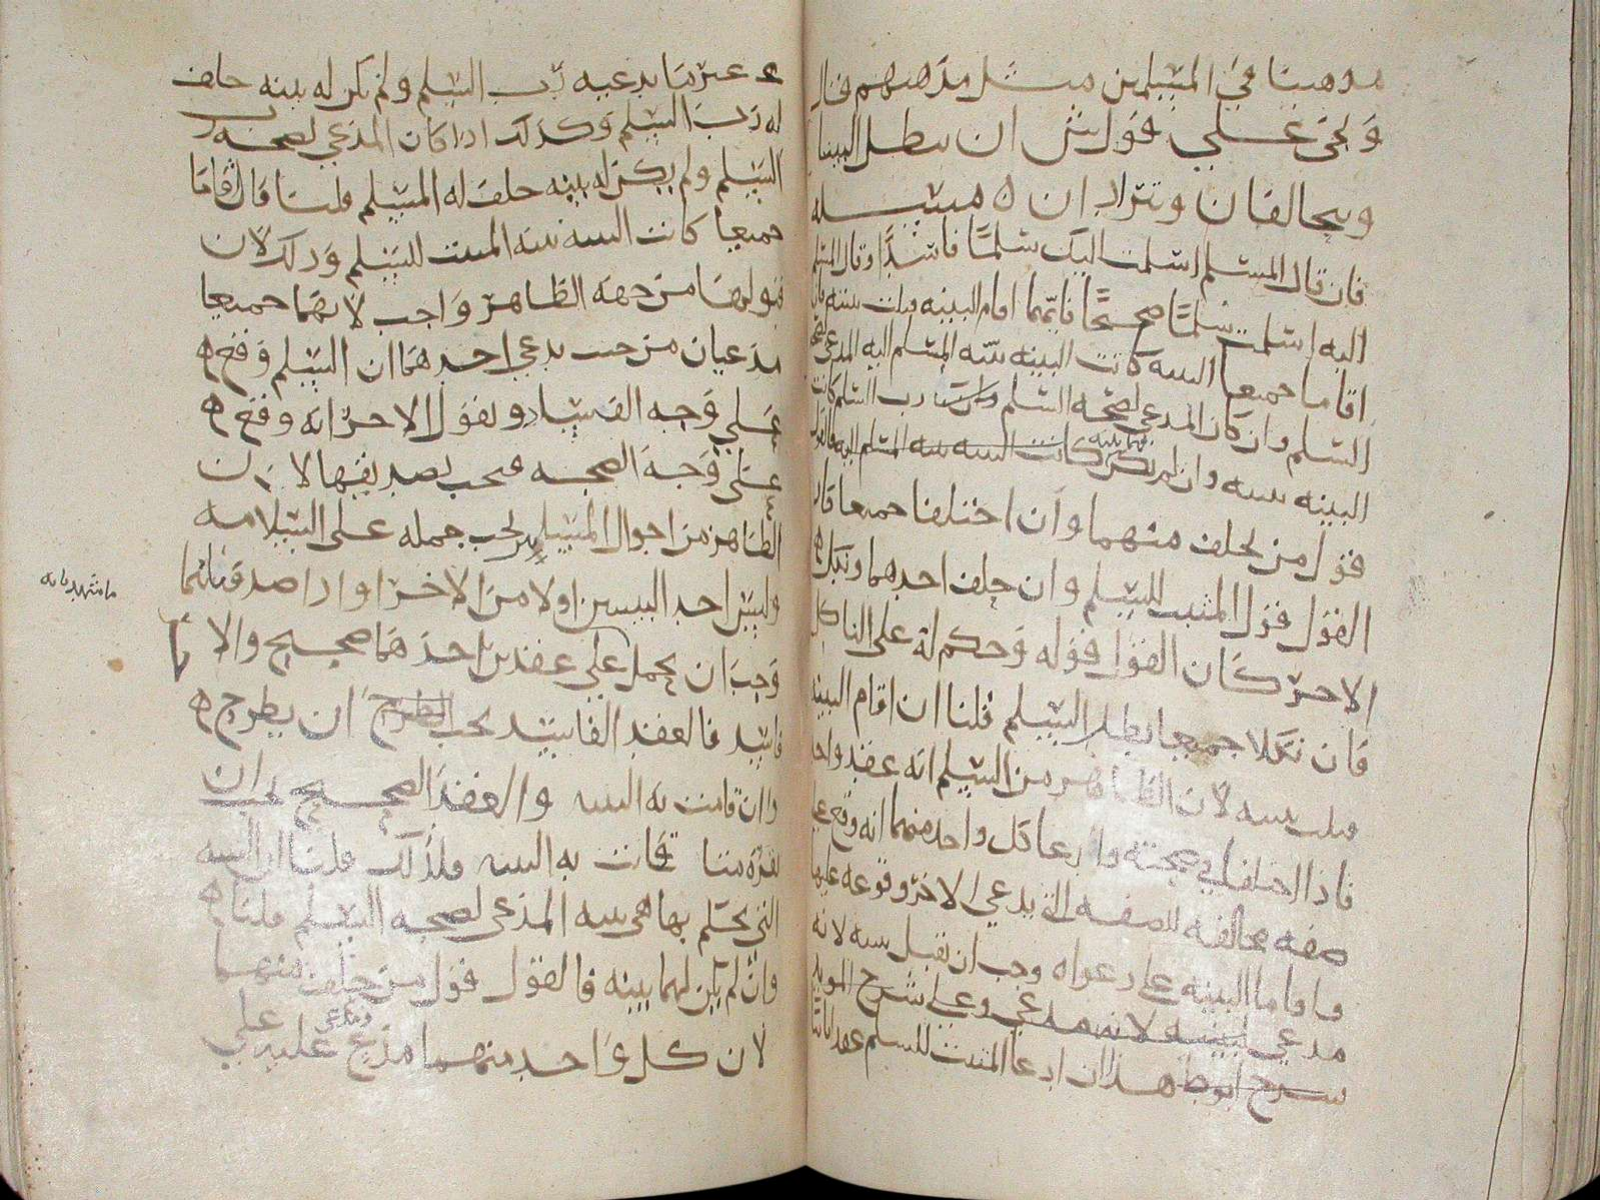 مذهبنا في المسلمين مثل مذهبهم قال
ويجي على قول ش ان تبطل البينتا
ويتحالفان ويترادان ه مسئلة
فان قال المسلم اسلمت اليك سلما فاسدا وقال المسلم
اليه اسلمت سلما صحيحا فايهما اقام البينه قبلت بينته فان
اقاما جميعا البينه كانت البينه بينه المسلم اليه المدعي لصحة
السلم وان كان المدعي لصحه السلم رب السلم كانت
البينه بينته وان لم يكن لهما بينه فالقول
قول من يحلف منهما وان اختلفا جميعا قال
القول قول المثبت للسلم وان حلف احدهما ونكل
الاخر كان القول قوله وحكم له على الناكل
فان نكلا جميعا بطل السلم قلنا ان اقام البينه
قبلت بينته لان الظاهر من السلم انه عقد واحد
فاذا اختلفا في صحته وادعا كل واحد منهما انه وقع على
صفه مخالفه للصفه التي يدعي الاخر وقوعه عليها
واقاما البينه على دعواه وجب ان تقبل بينته لانه
مدعي لبينه لانه مدعي وعلى شرح المويد
شرح ابوط هذا ان ادعا المثبت للسلم عقدا ثابتا
عن ما يدعيه رب السلم ولم يكن له بينه حلف
له رب السلم وكذلك اذا كان المدعي لصحة
السلم ولم يكن له بينه حلف له المسلم قلنا قال فاقاما
جميعا كانت البينه بينه المثبت للسلم وذلك لان
قبولهما من جهة الظاهر واجب لانهما جميعا
مدعيان من حيث يدعي احدهما ان السلم وقع ه
على وجه الفساد ويقول الاخر انه وقع ه
على وجه الصحه فيجب تصديقها لان
الظاهر من احوال المسلمين يجب حمله على السلامه
وليس احد البينتين اولا من الاخرا واذا صدقناهما
ما شهدتا به
وجب ان يحمل على عقدين احدهما صحيح والاخر
فاسد فالعقد الفاسد يجب ان يطرح ه
وان قامت به البينه والعقد الصحيح يجب ان
يقرر متا قامت به البينه ولذلك قلنا ان البينه
التي يحكم بها هي بينه المدعي لصحه السلم قلنا ه
وان لم يكن لهما بينه فالقول قول من حلف منهما
لان كل واحد منهما مدع ومدعى عليه على